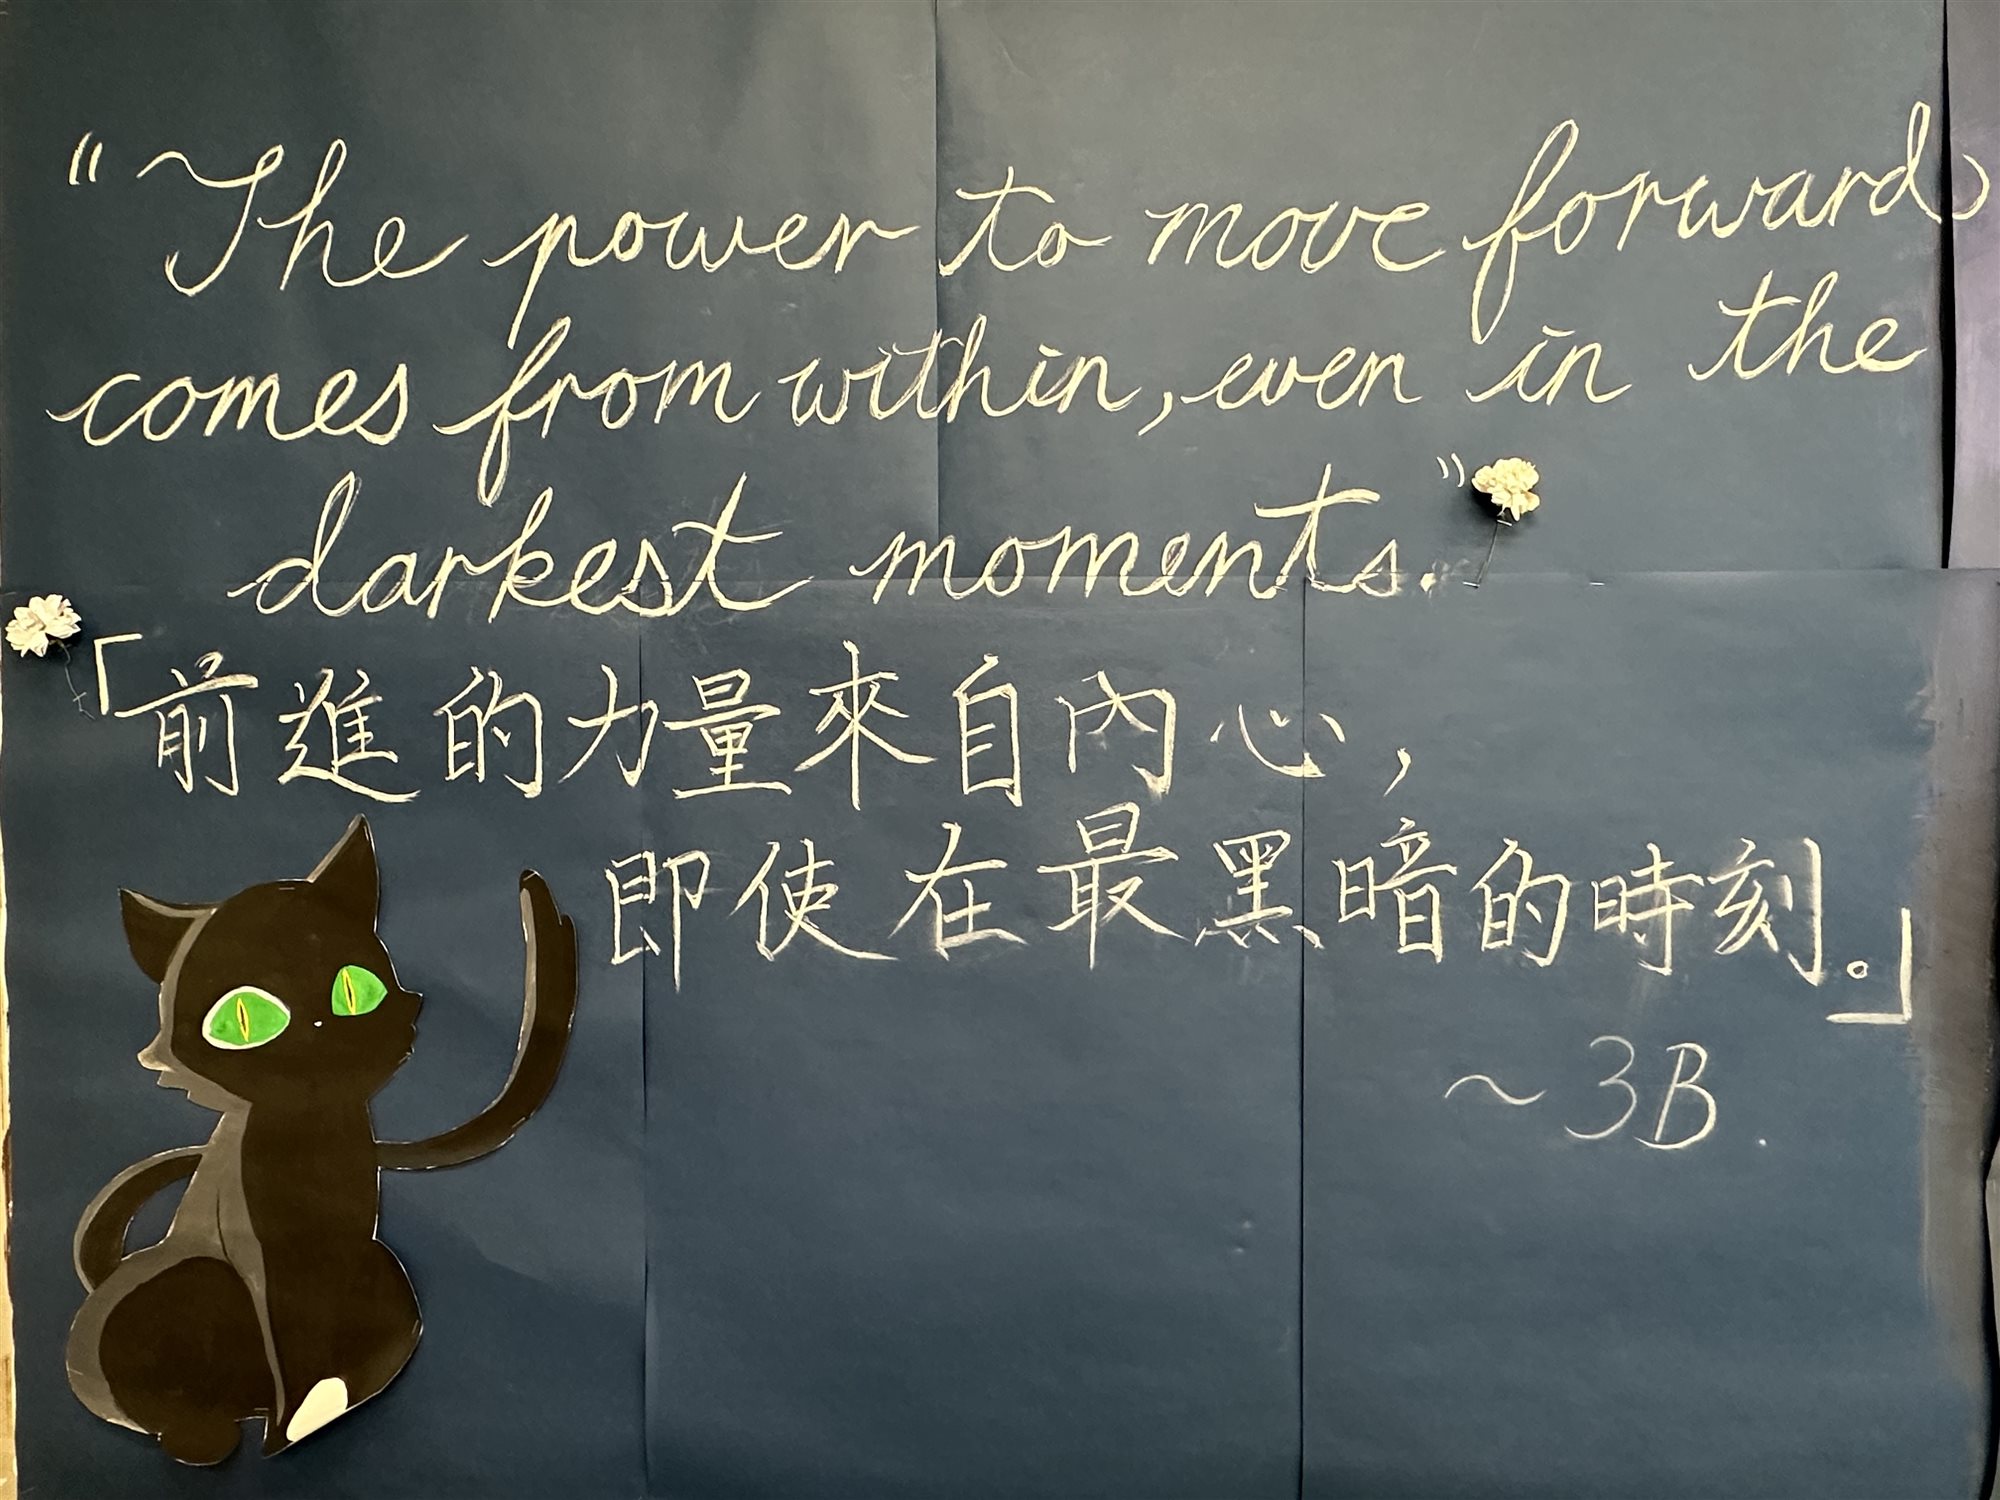 "The power to move forward
comes from within, even in the
darkest moments."
「前進的力量來自內心,
即使在最黑暗的時刻。」
~3B.